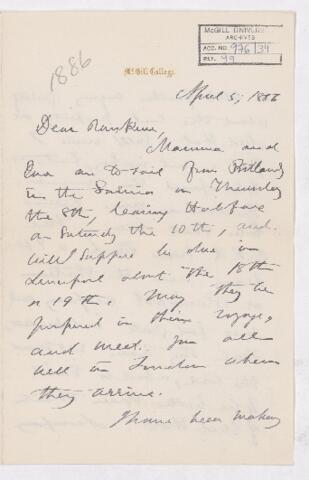 McGILL UNIVERSITY
ARCHIVES
ACC. NO. 976/34
REF. 49
1886
McGill College.
April 5, 1886
Dear Rankine,
Mamma and
Eva are to sail from Portland
in the Sarnia on Thursday
the 8th, leaving Halifax
on Saturday the 10th, and
will I suppose be due in
Liverpool about the 18th
or 19th. May they be
prospered in their voyage,
and meet you all
well in London when
they arrive.
I have been making